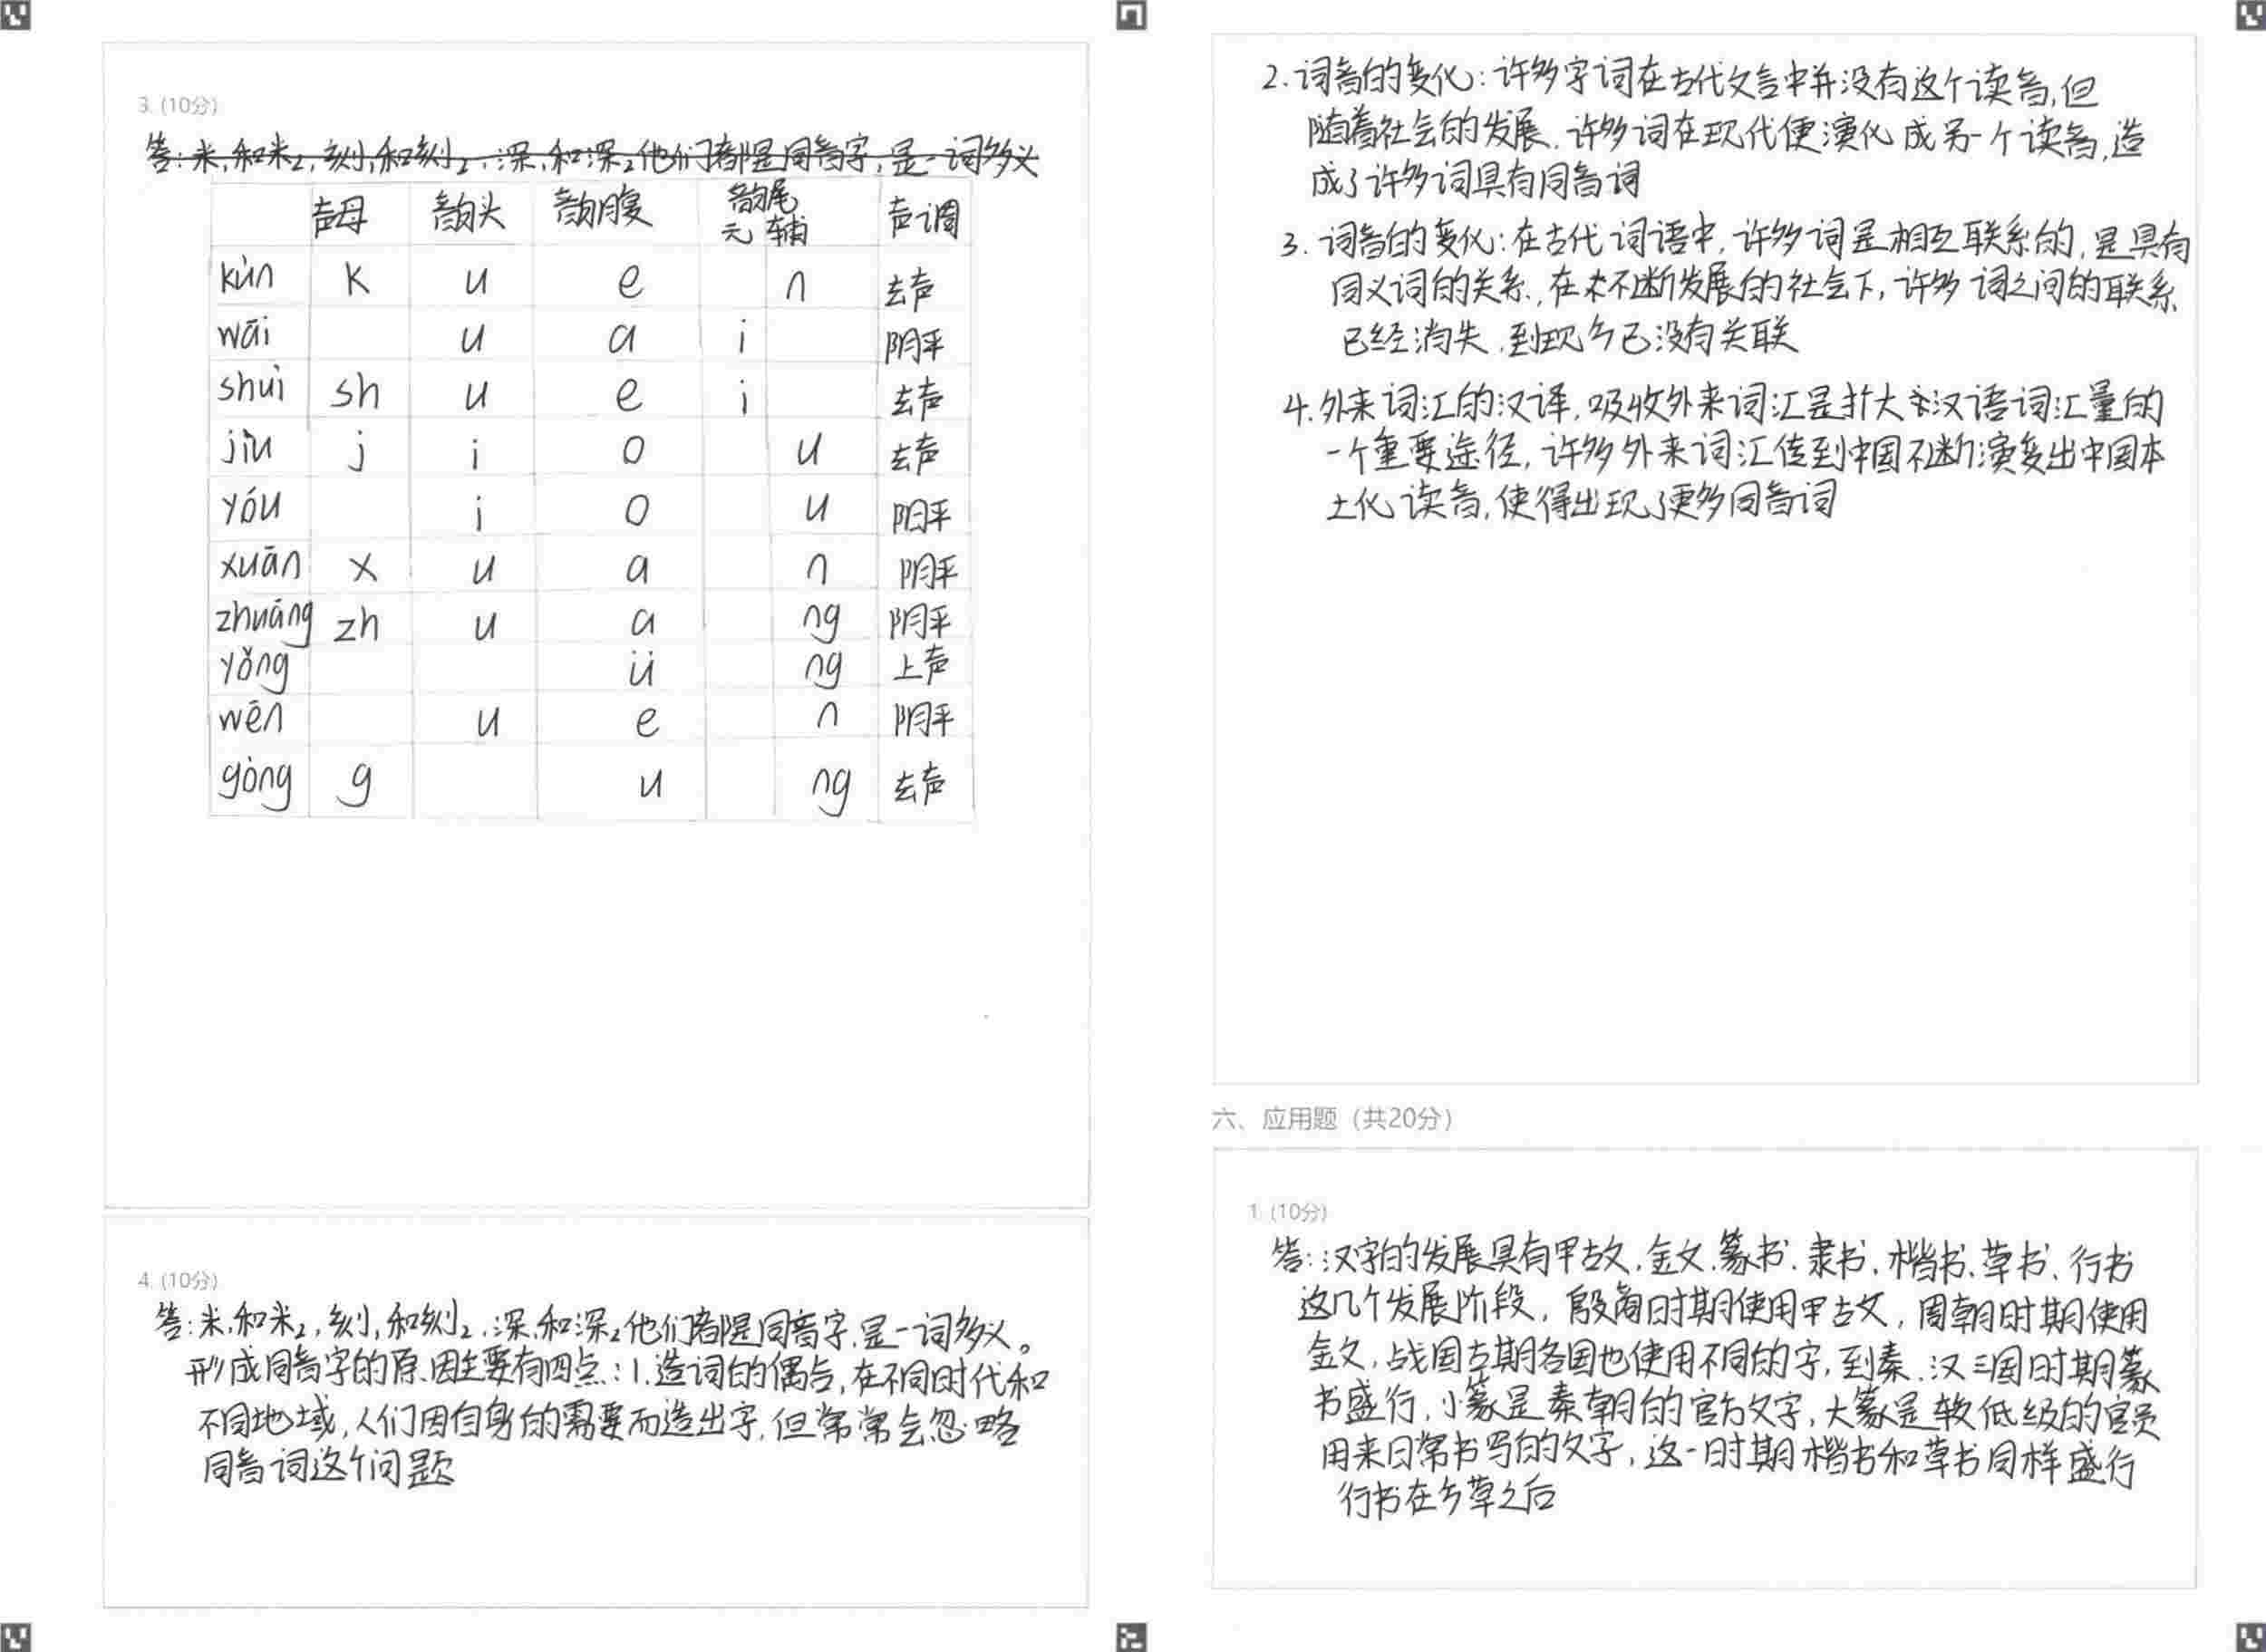 3. (10分)
答:米1和米2,刻1和刻2,深1和深2他们都是同音字,是一词多义
声母 韵头 韵腹 韵尾 声调
元 辅
kùn k u e n 去声
wāi u a i 阴平
shuì sh u e i 去声
jiù j i o u 去声
yóu i o u 阳平
xuān x u a n 阴平
zhuāng zh u a ng 阴平
yǒng ü ng 上声
wēn u e n 阴平
gòng g u ng 去声
4. (10分)
答:米1和米2,刻1和刻2,深1和深2他们都是同音字,是一词多义。
形成同音字的原因主要有四点:1.造词的偶合,在不同时代和
不同地域,人们因自身的需要而造出字,但常常会忽略
同音词这个问题
2.词音的变化:许多字词在古代文言中并没有这个读音,但
随着社会的发展,许多词在现代便演化成另一个读音,造
成了许多词具有同音词
3.词音的变化:在古代词语中,许多词是相互联系的,是具有
同义词的关系,在不断发展的社会下,许多词之间的联系
已经消失,到现今已没有关联
4.外来词汇的汉译,吸收外来词汇是扩大汉语词汇量的
一个重要途径,许多外来词汇传到中国不断演变出中国本
土化读音,使得出现了更多同音词
六、应用题(共20分)
1. (10分)
答:汉字的发展具有甲古文,金文、篆书、隶书、楷书、草书、行书
这几个发展阶段,殷商时期使用甲古文,周朝时期使用
金文,战国时期各国也使用不同的字,到秦、汉三国时期篆
书盛行,小篆是秦朝的官方文字,大篆是较低级的官员
用来日常书写的文字,这一时期楷书和草书同样盛行
行书在今草之后